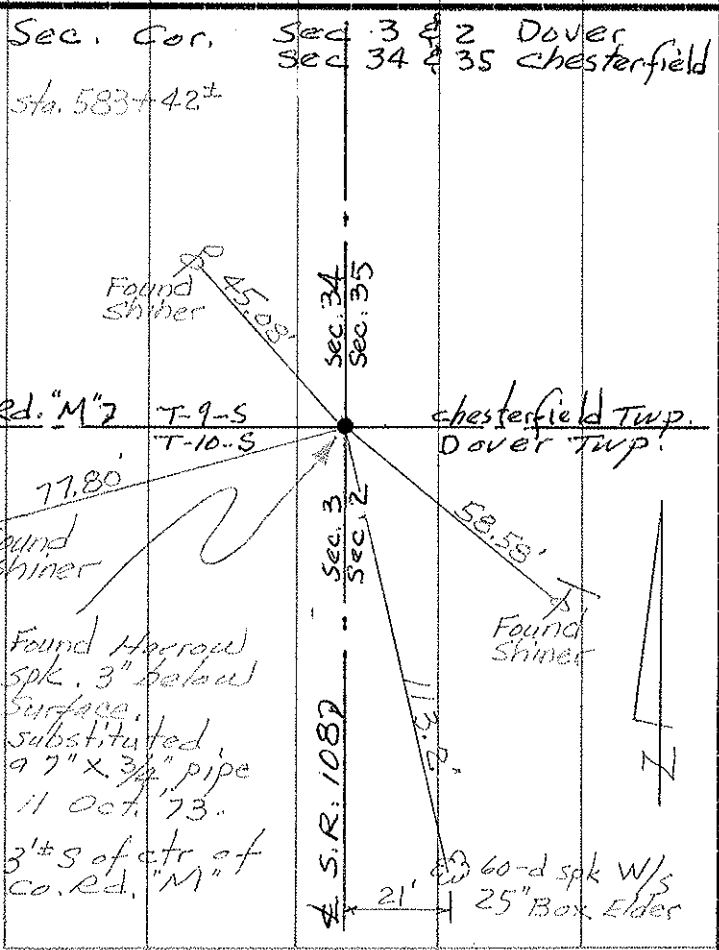 Sec. Cor. Sec. 3 & 2 Dover
Sec 34 & 35 chesterfield
sta. 583+42±
Found
Shiner
45.08'
Sec. 34
Sec. 35
Rd. "M"
T-9-S
T-10-S
chesterfield Twp.
Dover Twp.
77.80'
Found
Shiner
Sec. 3
Sec. 2
58.58'
Found
Shiner
Found Harrow
spk. 3" below
Surface.
substituted
a 7" x 3/4" pipe
11 Oct. '73.
3'± S of ctr. of
co. Rd. "M"
℄ S.R. 108
21'
60-d spk W/s
25" Box Elder